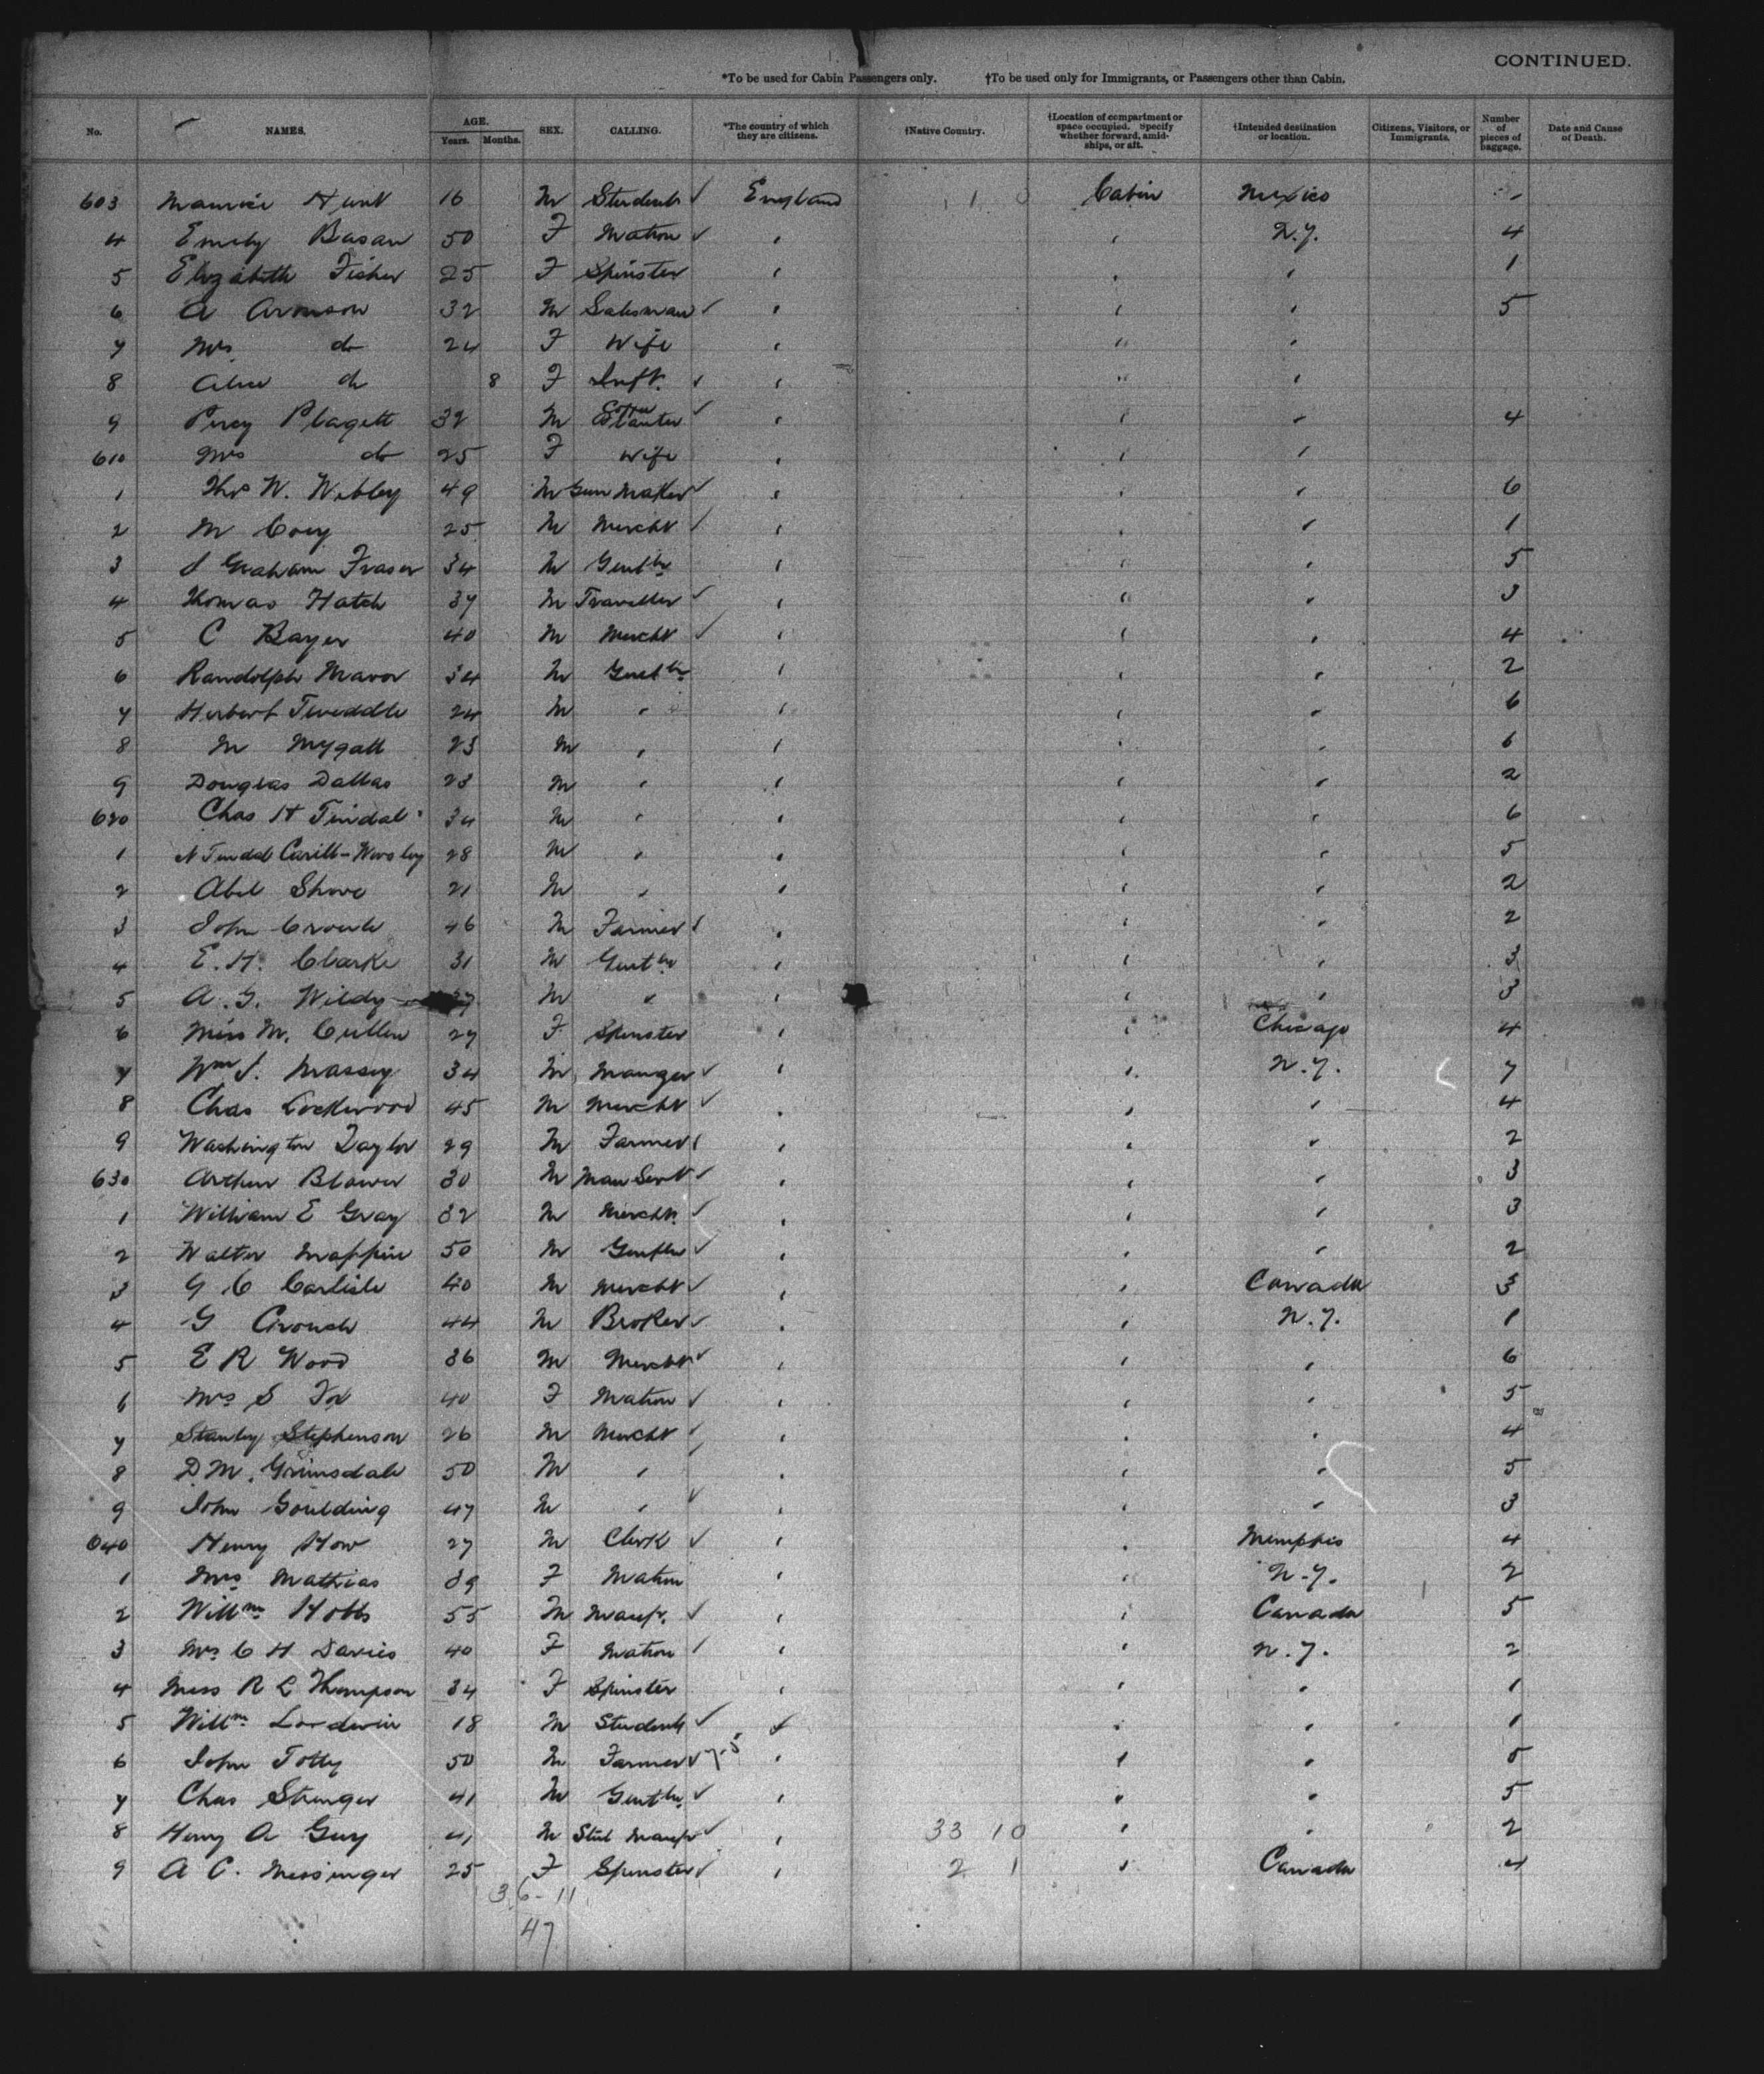 CONTINUED.
*To be used for Cabin Passengers only. †To be used only for Immigrants, or Passengers other than Cabin.
No. NAMES. AGE. Years. Months. SEX. CALLING. *The country of which they are citizens. †Native Country. †Location of compartment or space occupied. Specify whether forward, amidships, or aft. †Intended destination or location. Citizens, Visitors, or Immigrants. Number of pieces of baggage. Date and Cause of Death.
603 Maurice Hunt 16 M Student ✓ England 1 0 Cabin Mexico -
4 Emily Basan 50 F Matron ✓ " " N.Y. 4
5 Elizabeth Fisher 25 F Spinster " " " 1
6 A Aronson 32 M Salesman ✓ " " " 5
7 Mrs do 24 F Wife " " "
8 Alice do 8 F Inft. ✓ " " "
9 Percy Plagett 32 M Coffee Planter ✓ " " " 4
610 Mrs do 25 F Wife " " "
1 Thos W. Webley 49 M Gun Maker ✓ " " " 6
2 M Cory 25 M Mercht ✓ " " " 1
3 J Graham Fraser 34 M Gentln " " " 5
4 Thomas Hatch 37 M Traveller ✓ " " " 3
5 C Bayer 40 M Mercht ✓ " " " 4
6 Randolph Mavor 34 M Gentln " " " 2
7 Herbert Tweddle 24 M " " " " 6
8 M Mygatt 23 M " " " " 6
9 Douglas Dallas 23 M " " " " 2
620 Chas H Tindal 34 M " " " " 6
1 N Tindal Carill-Worsley 28 M " " " " 5
2 Abel Shove 21 M " " " " 2
3 John 46 M Farmer ✓ " " " 2
4 E. H. Clarke 31 M Gentln " " " 3
5 A. G. Wildy 37 M " " " " 3
6 Miss M. Cullen 27 F Spinster " " Chicago 4
7 Wm J. Massey 34 M Manager ✓ " " N.Y. 7
8 Chas Lockwood 45 M Mercht ✓ " " " 4
9 Washington Taylor 29 M Farmer ✓ " " " 2
630 Arthur Blower 30 M Man Servt ✓ " " " 3
1 William E Gray 32 M Mercht ✓ " " " 3
2 Walter Mappin 50 M Gentln ✓ " " " 2
3 G C Carlisle 40 M Mercht ✓ " " Canada 3
4 G Crouch 44 M Broker ✓ " " N.Y. 1
5 E R Wood 36 M Mercht ✓ " " " 6
6 Mrs S Fox 40 F Matron ✓ " " " 5
7 Stanley Stephenson 26 M Mercht ✓ " " " 4
8 D M. Grimsdale 50 M " ✓ " " " 5
9 John Goulding 47 M " ✓ " " " 3
640 Henry How 27 M Clerk ✓ " " Memphis 4
1 Mrs Mathias 39 F Matron " " N.Y. 2
2 Willm Hobbs 55 M Manfr. ✓ " " Canada 5
3 Mrs C H Davies 40 F Matron ✓ " " N.Y. 2
4 Miss R L Thompson 34 F Spinster " " " 1
5 Willm 18 M Student ✓ " " " 1
6 John Totty 50 M Farmer ✓ " " " 5
7 Chas Stringer 41 M Gentln ✓ " " " 5
8 Henry A Guy 41 M Steel Manfr ✓ " 33 10 " " 2
9 A C. Messinger 25 F Spinster ✓ " 2 1 " Canada 4
36-11
47